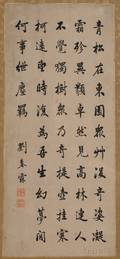 青松在東園衆草沒奇姿凝
霜殄異類卓然見高林連人
不覺獨樹衆乃奇提壺挂寒
柯遠望時復為吾生幻夢間
何事紲塵羈
劉春霖